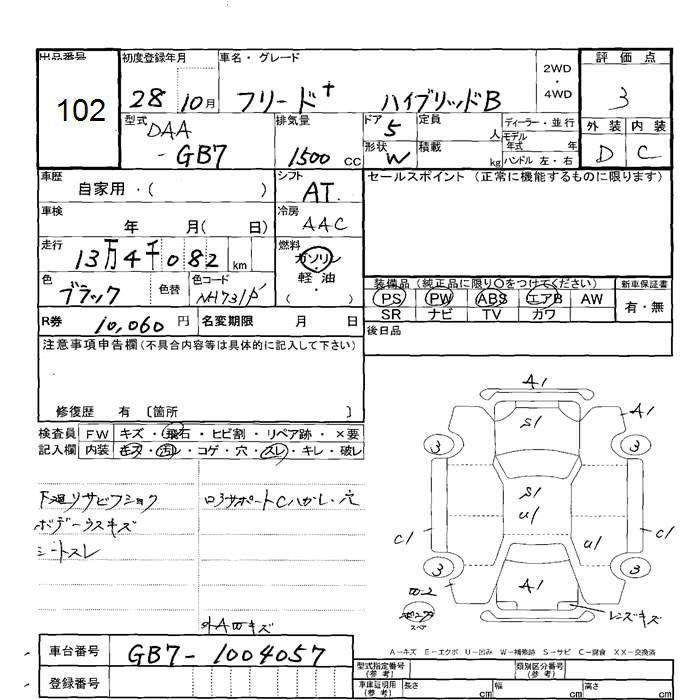 出品番号 102
初度登録年月 28 10月
車名・グレード フリード+ ハイブリッドB
2WD ・ 4WD
評価点 3
型式 DAA -GB7
排気量 1500 cc
ドア 5
形状 W
定員 人
積載 kg
ディーラー・並行
モデル年式 年
ハンドル 左・右
外装 内装
D C
車歴 自家用・( )
シフト AT
セールスポイント (正常に機能するものに限ります)
車検 年 月( 日)
冷房 AAC
走行 13万4千082 km
燃料 ガソリン
軽油
( ・ )
色 ブラック 色替
色コード NH731P
装備品 (純正品に限り○をつけてください) 新車保証書
PS PW ABS エアB AW 有・無
SR ナビ TV カワ
R券 10,060 円 名変期限 月 日
後日品
注意事項申告欄 (不具合内容等は具体的に記入して下さい)
修復歴 有 〔箇所 〕
検査員 FW キズ・飛石・ヒビ割・リペア跡・×要
記入欄 内装 キズ・汚れ・コゲ・穴・スレ・キレ・破レ
下廻リサビフショク ロアサポートCハガレ・穴
ボデーウスキズ
シートスレ
A1
S1 A1
3 3
S1
U1
C1 U1 C1
3 3
A1
レンズキズ
スペア
A-キズ E-エクボ U-凹み W-補修跡 S-サビ C-腐食 XX-交換済
車台番号 GB7-1004057
登録番号
型式指定番号 (参考) 類別区分番号 (参考)
車庫証明用 (参考) 長さ cm 幅 cm 高さ cm